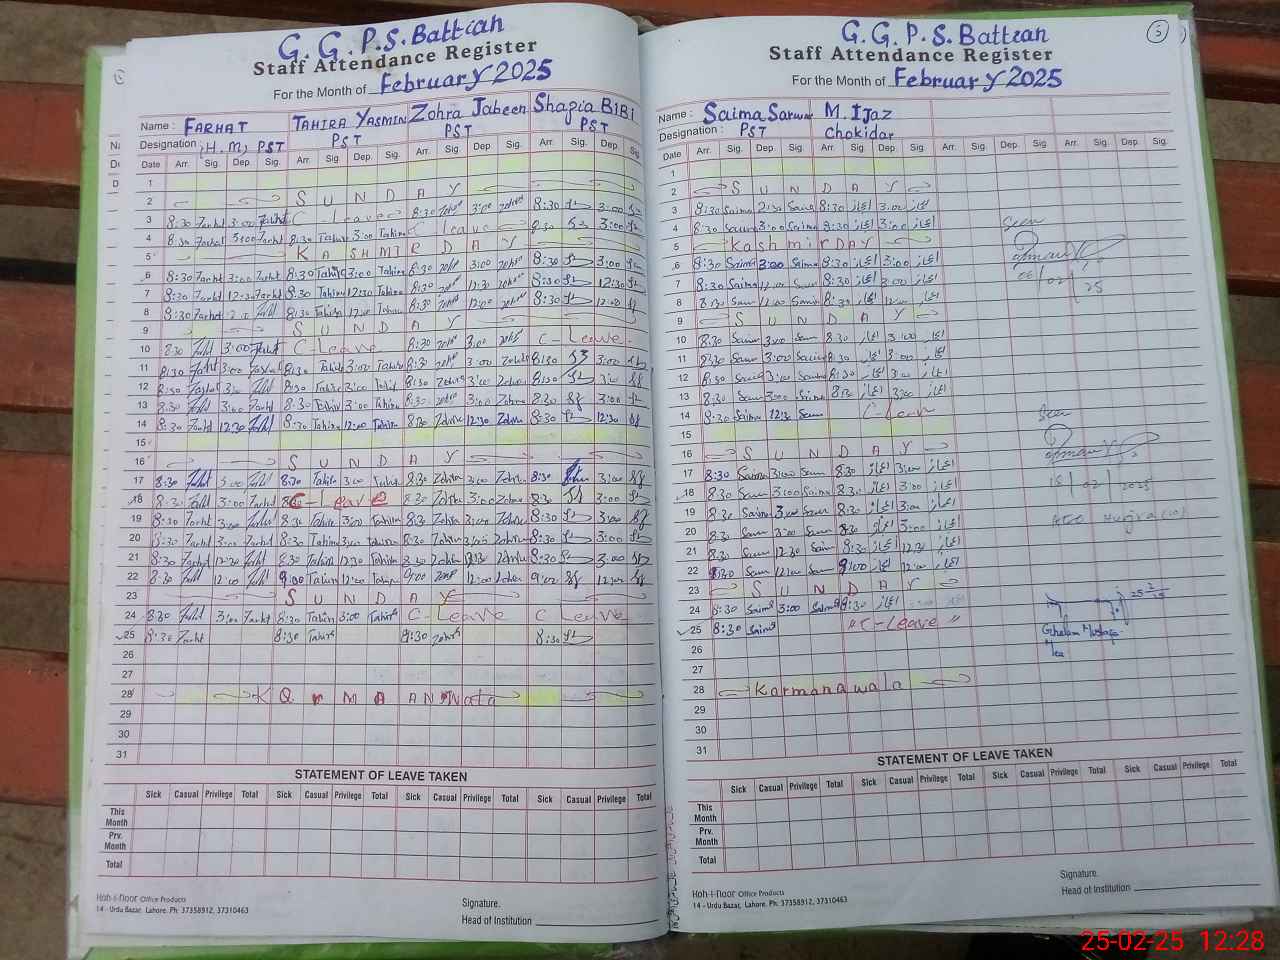 G. G. P. S. Battian
Staff Attendance Register
For the Month of February 2025
Name : FARHAT TAHIRA YASMIN Zohra Jabeen Shazia BiBi
Designation (H.M) PST PST PST PST
Date Arr. Sig. Dep. Sig. Arr. Sig. Dep. Sig. Arr. Sig. Dep. Sig. Arr. Sig. Dep. Sig.
1
2 S U N D A Y
3 8:30 Farht 3:00 Farht C - Leave 8:30 3:00 8:30 3:00
4 8:30 Farht 3:00 Farht 8:30 Tahira 3:00 Tahira C Leave 8:30 3:00
5 K A S H M I R D A Y
6 8:30 Farht 3:00 Farht 8:30 Tahira 3:00 Tahira 8:30 3:00 8:30 3:00
7 8:30 Farht 12:30 Farht 8:30 Tahira 12:30 Tahira 8:30 12:30 8:30 12:30
8 8:30 Farht 12:00 Farht 8:30 Tahira 12:00 Tahira 8:30 12:00 8:30 12:00
9 S U N D A Y
10 8:30 Farht 3:00 Farht C - Leave 8:30 3:00 C - Leave
11 8:30 Farht 3:00 Farht 8:30 Tahira 3:00 Tahira 8:30 3:00 Zohra 8:30 3:00
12 8:30 Farht 3:00 Farht 8:30 Tahira 3:00 Tahira 8:30 Zohra 3:00 Zohra 8:30 3:00
13 8:30 Farht 3:00 Farht 8:30 Tahira 3:00 Tahira 8:30 3:00 Zohra 8:30 3:00
14 8:30 Farht 12:30 Farht 8:30 Tahira 12:00 Tahira 8:30 Zohra 12:30 Zohra 8:30 12:30
15
16 S U N D A Y
17 8:30 Farht 3:00 Farht 8:30 Tahira 3:00 Tahira 8:30 Zohra 3:00 Zohra 8:30 3:00
18 8:30 Farht 3:00 Farht C - Leave 8:30 Zohra 3:00 Zohra 8:30 3:00
19 8:30 Farht 3:00 Farht 8:30 Tahira 3:00 Tahira 8:30 Zohra 3:00 Zohra 8:30 3:00
20 8:30 Farht 3:00 Farht 8:30 Tahira 3:00 Tahira 8:30 Zohra 3:00 Zohra 8:30 3:00
21 8:30 Farht 12:30 Farht 8:30 Tahira 12:30 Tahira 8:30 Zohra 12:30 Zohra 8:30 3:00
22 8:30 Farht 12:00 Farht 9:00 Tahira 12:00 Tahira 9:00 12:00 Zohra 9:00 12:00
23 S U N D A Y
24 8:30 Farht 3:00 Farht 8:30 Tahira 3:00 Tahira C - Leave C Leave
25 8:30 Farht 8:30 Tahira 8:30 8:30
26
27
28
29
30
31
STATEMENT OF LEAVE TAKEN
Sick Casual Privilege Total Sick Casual Privilege Total Sick Casual Privilege Total Sick Casual Privilege Total
This Month
Prv. Month
Total
Hoh-i-Noor Office Products
14 - Urdu Bazar, Lahore. Ph: 37358912, 37310463
Signature.
Head of Institution
G. G. P. S. Battian
5
Staff Attendance Register
For the Month of February 2025
Name : Saima Sarwar M. IJaz
Designation : PST Chokidar
Date Arr. Sig. Dep. Sig. Arr. Sig. Dep. Sig. Arr. Sig. Dep. Sig. Arr. Sig. Dep. Sig.
1
2 S U N D A Y
3 8:30 Saima 2:30 Saima 8:30 اعجاز 3:00 اعجاز
4 8:30 Saima 3:00 Saima 8:30 اعجاز 3:00 اعجاز
Seen
5 Kashmir DAY
6 8:30 Saima 3:00 Saima 8:30 اعجاز 3:00 اعجاز
06/02/25
7 8:30 Saima 12:00 Saima 8:30 اعجاز 12:30 اعجاز
8 8:30 Saima 12:00 Saima 8:30 اعجاز 12:00 اعجاز
9 S U N D A Y
10 8:30 Saima 3:00 Saima 8:30 اعجاز 3:00 اعجاز
11 8:30 Saima 3:00 Saima 8:30 اعجاز 3:00 اعجاز
12 8:30 Saima 3:00 Saima 8:30 اعجاز 3:00 اعجاز
13 8:30 Saima 3:00 Saima 8:30 اعجاز 3:00 اعجاز
14 8:30 Saima 12:30 Saima C - Leave
Seen
15
16 S U N D A Y
17 8:30 Saima 3:00 Saima 8:30 اعجاز 3:00 اعجاز
18 8:30 Saima 3:00 Saima 8:30 اعجاز 3:00 اعجاز
18/02/2025
19 8:30 Saima 3:00 Saima 8:30 اعجاز 3:00 اعجاز
AEO Hujra (W)
20 8:30 Saima 3:00 Saima 8:30 اعجاز 3:00 اعجاز
21 8:30 Saima 12:30 Saima 8:30 اعجاز 12:30 اعجاز
22 8:30 Saima 12:00 Saima 9:00 اعجاز 12:00 اعجاز
23 S U N D A Y
24 8:30 Saima 3:00 Saima 8:30 اعجاز
25 8:30 Saima " C - Leave "
Ghulam Mustafa
Mea
26
27
28 Karmanawala
29
30
31
STATEMENT OF LEAVE TAKEN
Sick Casual Privilege Total Sick Casual Privilege Total Sick Casual Privilege Total Sick Casual Privilege Total
This Month
Prv. Month
Total
Hoh-i-Noor Office Products
14 - Urdu Bazar, Lahore. Ph: 37358912, 37310463
Signature.
Head of Institution
25-02-25 12:28